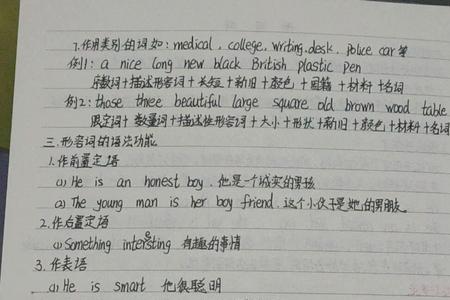 7.作用类别的词如:medical, college, writing.desk, police car等
例1: a nice long new black British plastic pen
序数词+描述形容词+长短+新旧+颜色+国籍+材料+名词
例2: those three beautiful large square old brown wood table
限定词+数量词+描述性形容词+大小+形状+新旧+颜色+材料+名词
三.形容词的语法功能
1.作前置定语
(1) He is an honest boy. 他是一个诚实的男孩
(2) The young man is her boy friend. 这个小伙子是她的男朋友
2.作后置定语
(1) Something interesting 有趣的事情
3.作表语
(1) He is smart 他很聪明